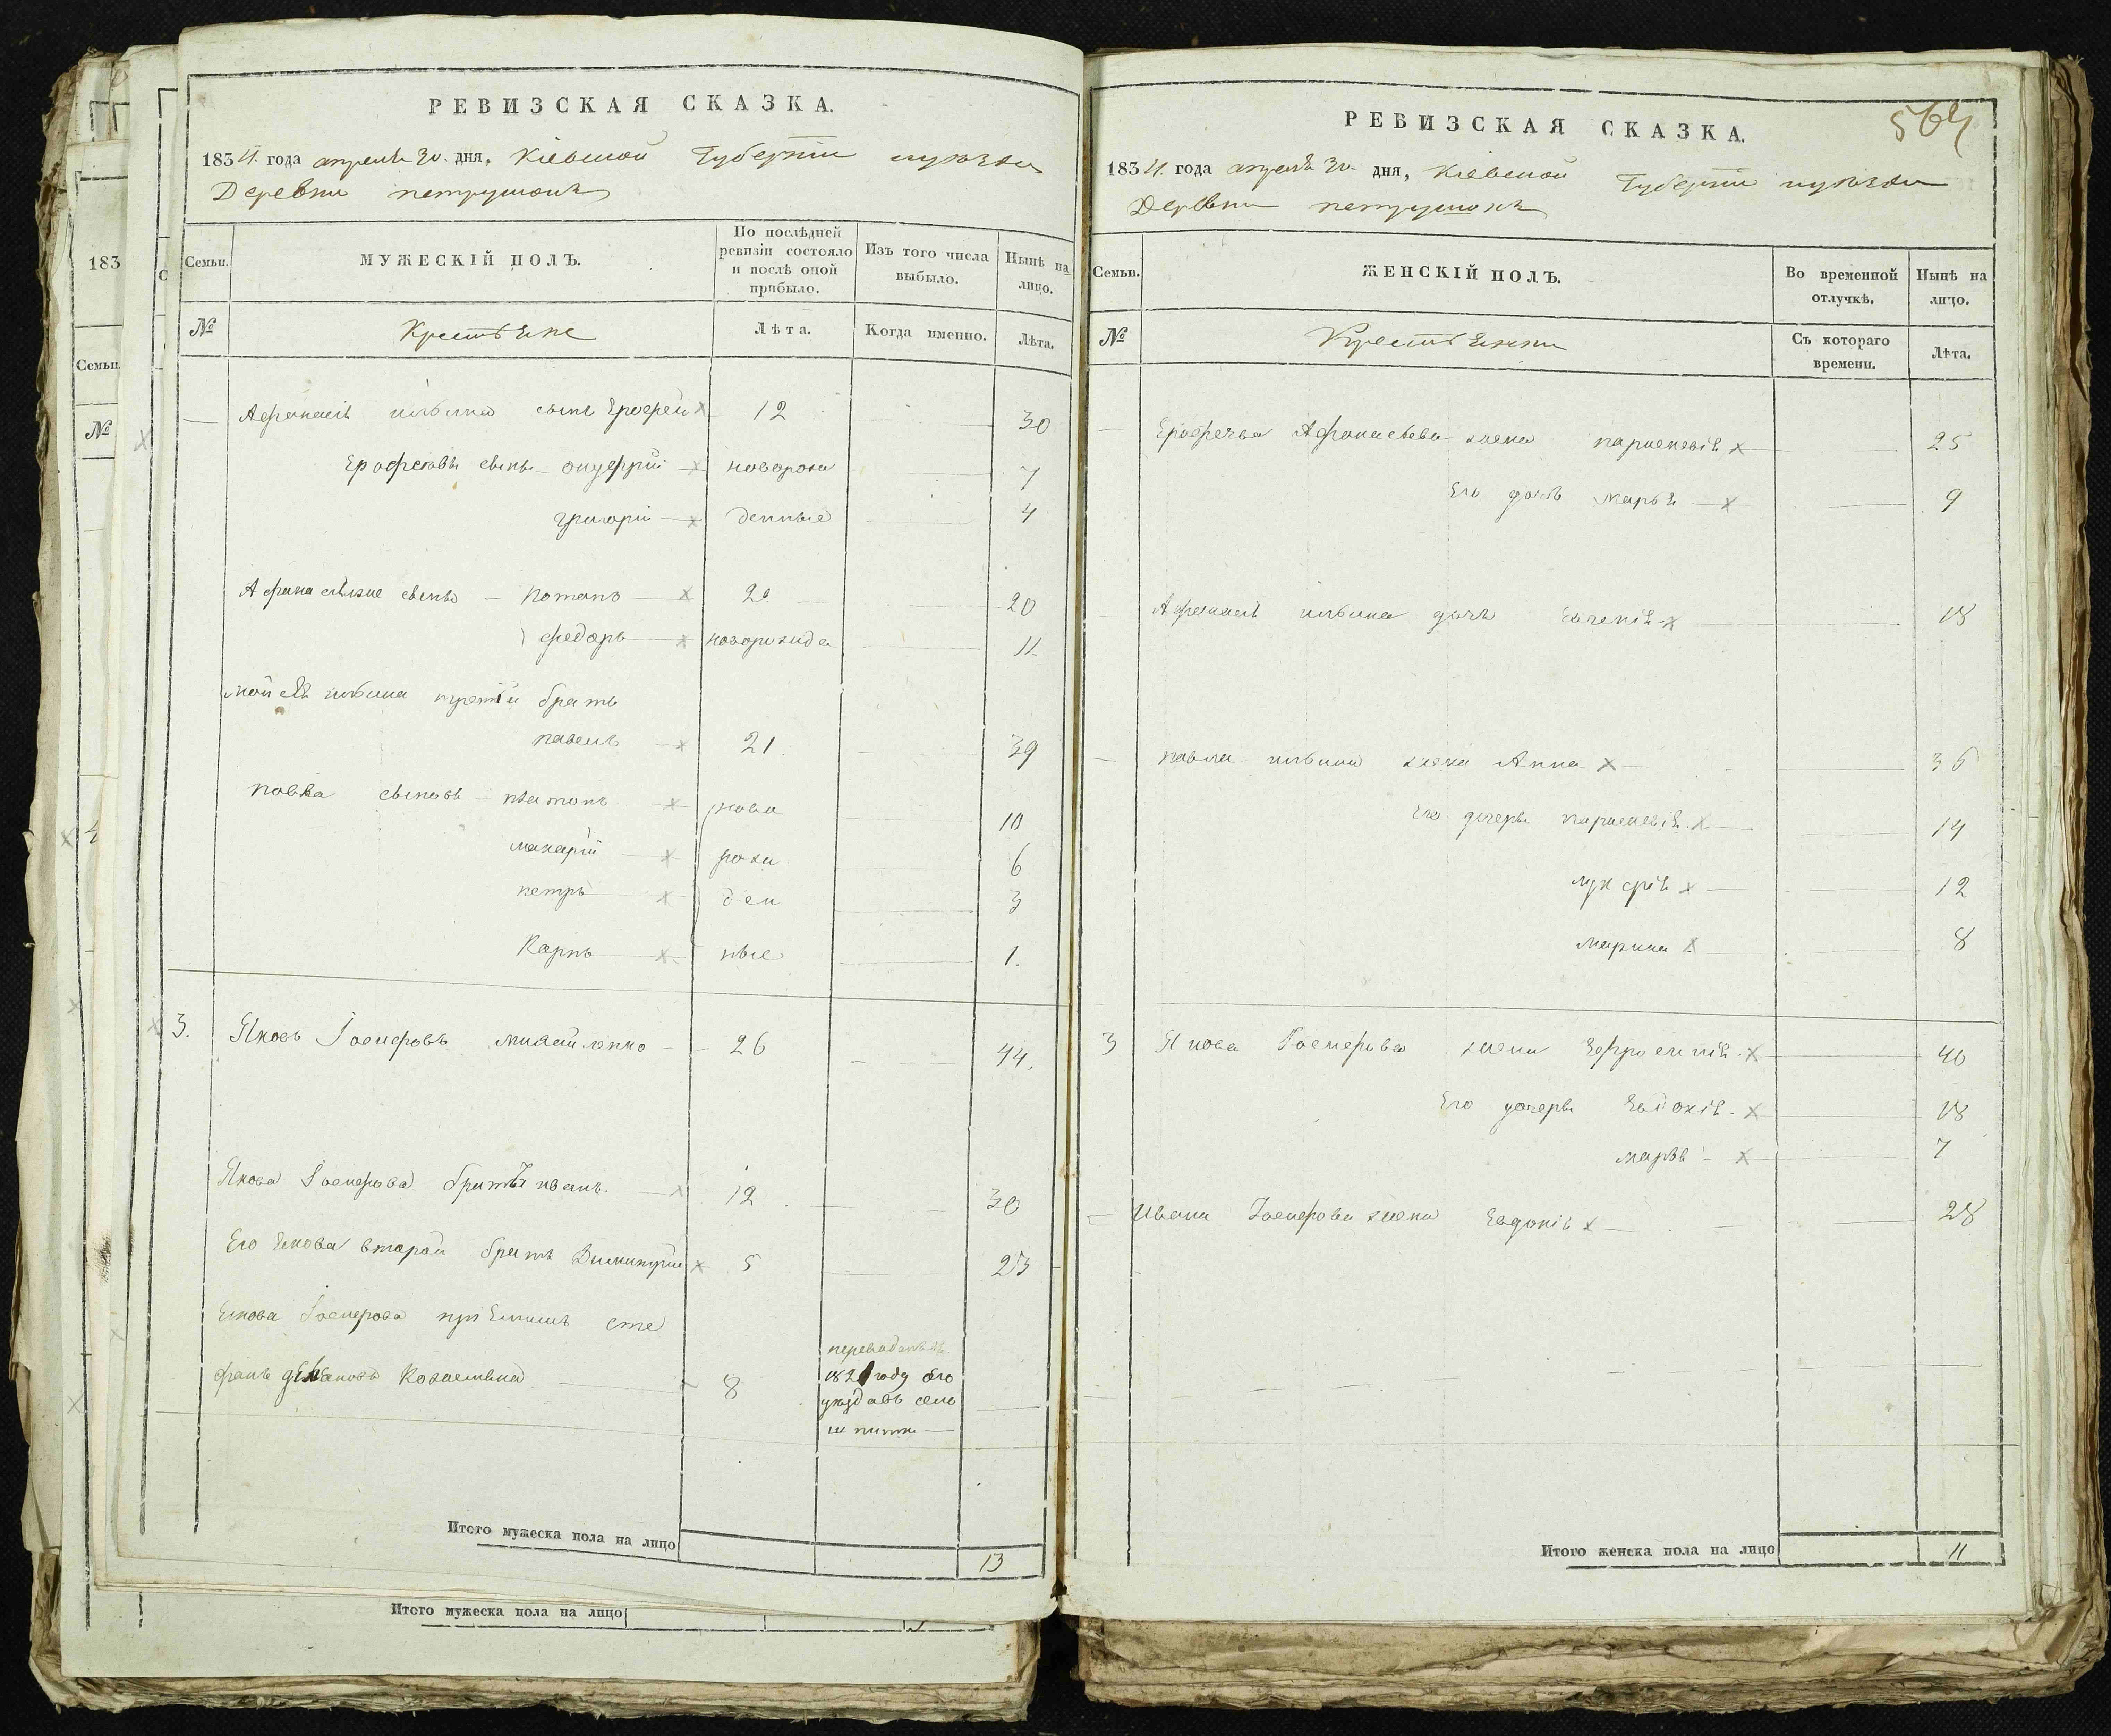 РЕВИЗСКАЯ СКАЗКА.
1834. года апреля 30. дня, Кіевской Губерніи иуѣзда
Деревни петрушокъ
Семьи.
МУЖЕСКІЙ ПОЛЪ.
По послѣдней ревизіи состояло и послѣ оной прибыло.
Изъ того числа выбыло.
Нынѣ на лицо.
№
Крестьяне
Лѣта.
Когда именно.
Лѣта.
Афанасія ильина сынъ Ерофей 12 30
Ерофеевы сыны онуфрій новорож 7
григорій денные 4
Афанасія сыны Потапъ 2 20
федоръ новорожде 11
мойсея ильина третій братъ
павелъ 21 39
павла сыновья платонъ ново 10
макарій рож 6
петръ ден 3
Карпъ ные 1.
3. Яковъ Іосифовъ 26 44.
Якова Іосифова братъ иванъ 12 30
Его Якова второй братъ Димитрій 5 23
Якова Іосифова пріемышъ сте
фанъ 8
1821 году
Итого мужеска пола на лицо 13
Итого мужеска пола на лицо
183
Семьи
№
РЕВИЗСКАЯ СКАЗКА.
1834. года апреля 30. дня, Кіевской Губерніи иуѣзда
Деревни петрушокъ
Семьи.
ЖЕНСКІЙ ПОЛЪ.
Во временной отлучкѣ.
Нынѣ на лицо.
№
Крестьянки
Съ котораго времени.
Лѣта.
Ерофея Афанасьева жена параскевія 25
Его дочь марья 9
Афанасія ильина дочь Евгенія 18
павла ильина жена Анна 36
Его дочери параскевія 14
лукерія 12
марина 8
3 Якова Іосифова жена Ефросинія 40
Его дочери Евдокія 18
марья 7
Ивана Іосифова жена Евдокія 28
Итого женска пола на лицо 11